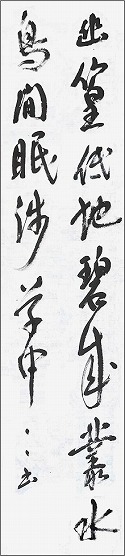 幽篁低地碧成叢水
鳥閒眠沙草中